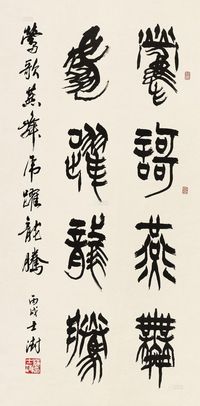 莺歌燕舞
虎躍龍騰
莺歌燕舞虎躍龍騰
丙戌士澍